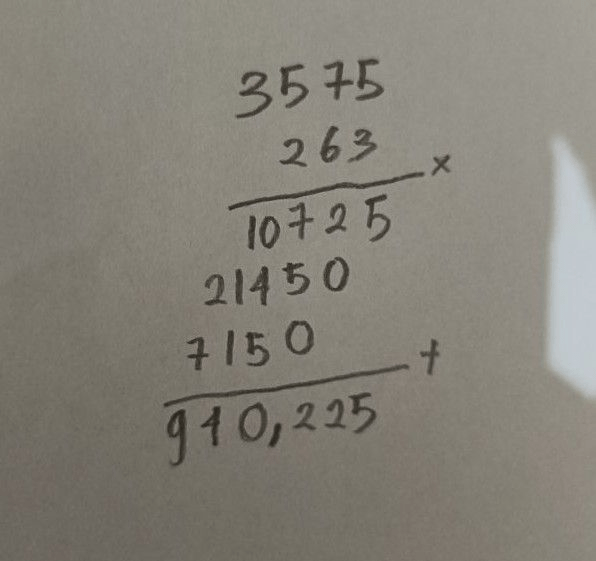 3575
263 ×
10725
21450
7150 +
940,225